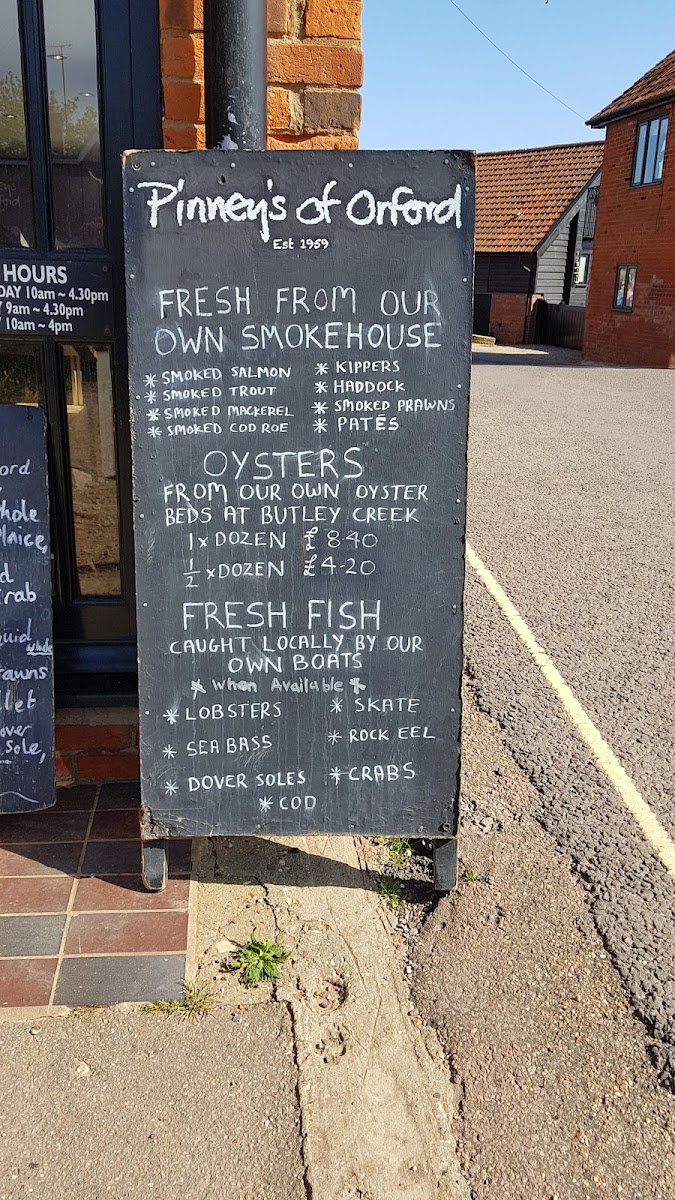 Pinney's of Orford
Est 1969
FRESH FROM OUR
OWN SMOKEHOUSE
* SMOKED SALMON
* SMOKED TROUT
* SMOKED MACKEREL
* SMOKED COD ROE
* KIPPERS
* HADDOCK
* SMOKED PRAWNS
* PATÉS
OYSTERS
FROM OUR OWN OYSTER
BEDS AT BUTLEY CREEK
1 x DOZEN £8.40
½ x DOZEN £4-20
FRESH FISH
CAUGHT LOCALLY BY OUR
OWN BOATS
* When Available *
* LOBSTERS
* SEA BASS
* DOVER SOLES
* SKATE
* ROCK EEL
* CRABS
* COD
HOURS
DAY 10am ~ 4.30pm
Y 9am ~ 4.30pm
10am ~ 4pm
ord
hole
laice,
d
rab
uid
awns
llet
over
sole,